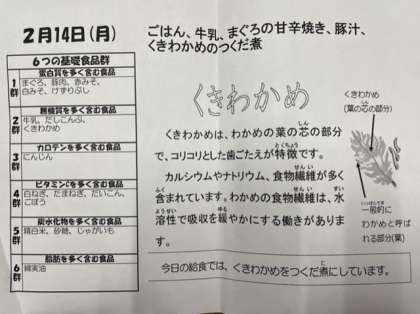 2月14日(月)
6つの基礎食品群
1群
蛋白質を多く含む食品
まぐろ、豚肉、赤みそ、
白みそ、けずりぶし
2群
無機質を多く含む食品
牛乳、だしこんぶ、
くきわかめ
3群
カロテンを多く含む食品
にんじん
4群
ビタミンCを多く含む食品
白ねぎ、たまねぎ、だいこん、
ごぼう
5群
炭水化物を多く含む食品
精白米、砂糖、じゃがいも
6群
脂肪を多く含む食品
綿実油
ごはん、牛乳、まぐろの甘辛焼き、豚汁、
くきわかめのつくだ煮
くきわかめ
くきわかめは、わかめの葉の芯の部分
で、コリコリとした歯ごたえが特徴です。
カルシウムやナトリウム、食物繊維が多く
含まれています。わかめの食物繊維は、水
溶性で吸収を緩やかにする働きがありま
す。
くきわかめ
(葉の芯の部分)
一般的に
わかめと呼ば
れる部分(葉)
今日の給食では、くきわかめをつくだ煮にしています。